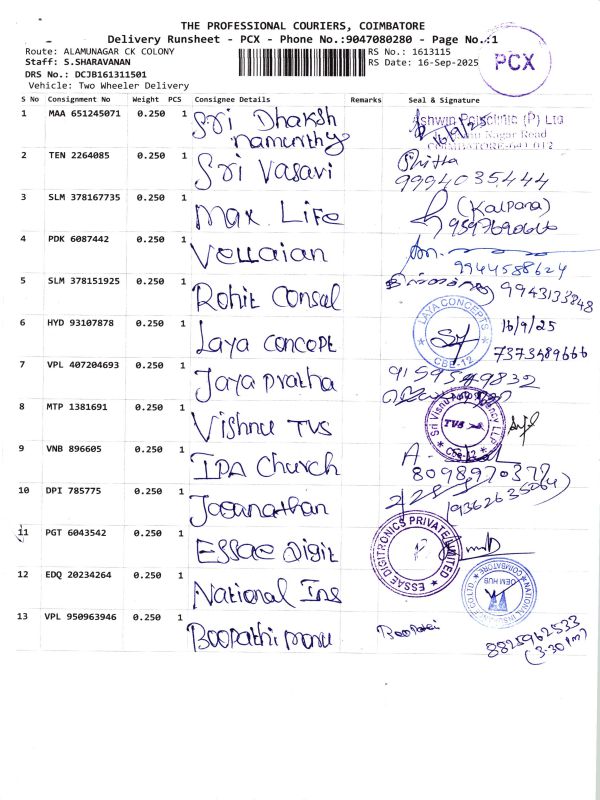 THE PROFESSIONAL COURIERS, COIMBATORE
Delivery Runsheet - PCX - Phone No.:9047080280 - Page No.:1
Route: ALAMUNAGAR CK COLONY
RS No.: 1613115
Staff: S.SHARAVANAN
RS Date: 16-Sep-2025
PCX
DRS No.: DCJB161311501
Vehicle: Two Wheeler Delivery
S No Consignment No Weight PCS Consignee Details Remarks Seal & Signature
1 MAA 651245071 0.250 1 Sri Dhaksh
namurthy
Ashwin Polyclinic (P) Ltd
16/9/25
Nagar Road
COIMBATORE-641 012
2 TEN 2264085 0.250 1 Sri Vasavi
9994035444
3 SLM 378167735 0.250 1 Max Life
(Kalpana)
9597690666
4 PDK 6087442 0.250 1 Vellaian
9944588624
5 SLM 378151925 0.250 1 Rohit Consal
9943133848
6 HYD 93107878 0.250 1 Laya concept
LAYA CONCEPTS
CBE-12
16/9/25
7373489666
7 VPL 407204693 0.250 1 Jaya pratha
9159549832
8 MTP 1381691 0.250 1 Vishnu TVS
TVS
CBE-12
9 VNB 896605 0.250 1 IPA Church
8098970377
10 DPI 785775 0.250 1 Jaganathan
(9362635264)
11 PGT 6043542 0.250 1 ESSAE Digit
ESSAE DIGITRONICS PRIVATE LIMITED
12 EDQ 20234264 0.250 1 National Ins
NATIONAL INSURANCE CO.LTD.
OEM HUB
COIMBATORE
13 VPL 950963946 0.250 1 Boopathi monu
Boopathi
8825962533
(3.30 Pm)